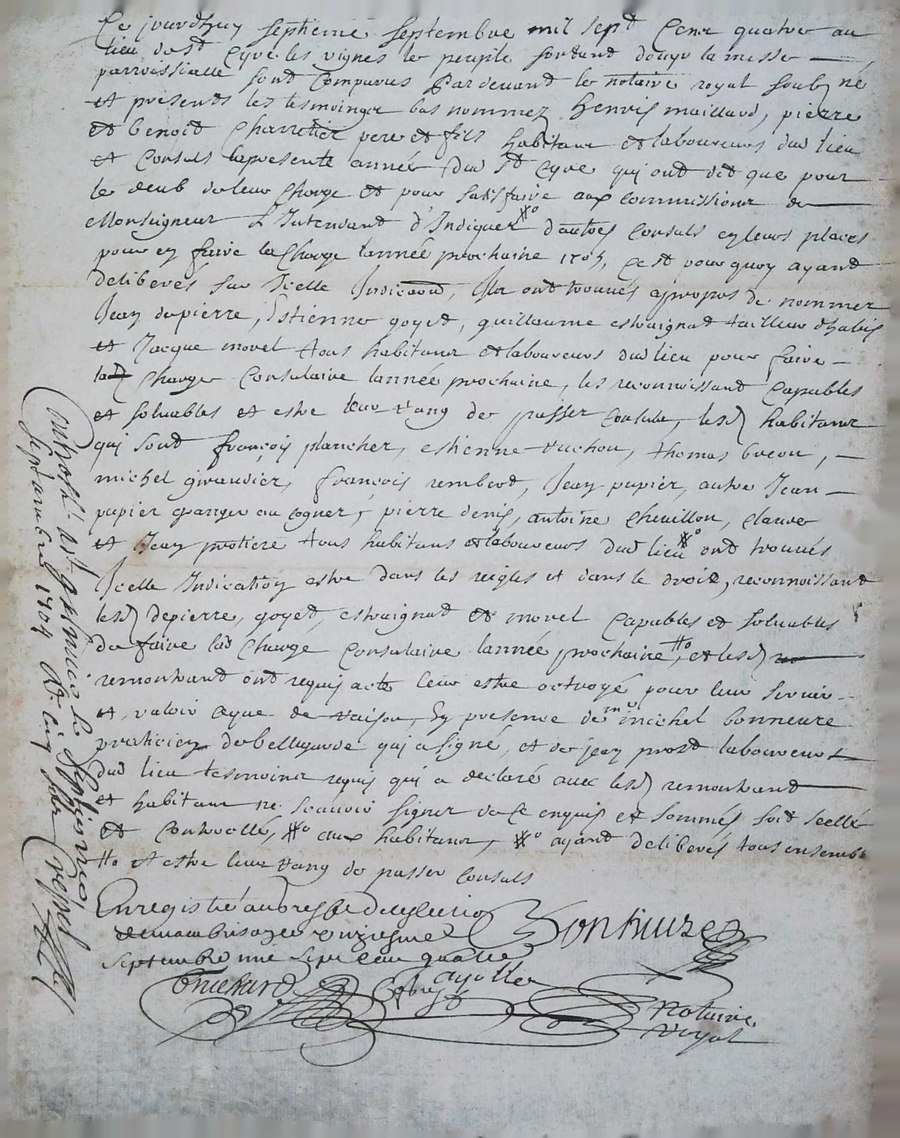 Ce jourdhuy septieme septembre mil sept Cent quatre au
lieu de st Cyre les vignes le peuple sortant douyr la messe
parroissialle sont Comparus Pardevant le notaire royal soubné
et presents les tesmoingts bas nommez, henris maillard, pierre
et benoit Charretier pere et fils habitans et laboureurs dud lieu
et Consuls la presente année dud St Cyre qui ont dit que pour
le deub de leur Charge et pour satisfaire aux Commissions de
Monseigneur L'Intendant d'Indiquer d'autres Consuls en leurs places
pour en faire la Charge lannée prochaine 1705, Cest pourquoy ayant
deliberés sur Icelle Indicaon, Ils ont trouués apropos de nommer
Jean depierre, Estienne goyet, guillaume estraignat tailleur dhabis
et Jacque morel tous habitans et laboureurs dud lieu pour faire
lad Charge Consulaire lannée prochaine, les reconnoissant Capables
et soluables et estre leur rang de passer Consuls, lesd habitans
qui sont françois plancher, estienne vachon, thomas brion,
michel giraudier, françois rembert, Jean papier, autre Jean
papier granger au cogner, pierre denis, antoine Chevillon, Claude
et Jean protiere tous habitans et laboureurs dud lieu ont trouués
Icelle Indication estre dans les reigles et dans le droit, reconnoissant
lesd depierre, goyet, estraignat et morel Capables et soluables
de faire lad Charge Consulaire lannée prochaine, et lesd
remonstrant ont requis acte leur estre octroyé pour leur servir
et valoir aque de raison, En presence de me michel bonneure
praticien de bellegarde qui a signé, et de jean prost laboureur
dud lieu tesmoins requis qui a declaré auec lesd remonstrant
et habitans ne scauoir signer de Ce enquis et sommés soit scellé
et Controllé, aux habitans, ayant deliberés tous ensemb
et estre leur rang de passer Consuls
Enregistré au
unziesme
septembre mil sept Cent quatre
Notaire
royal
Controllé
septembre 1704